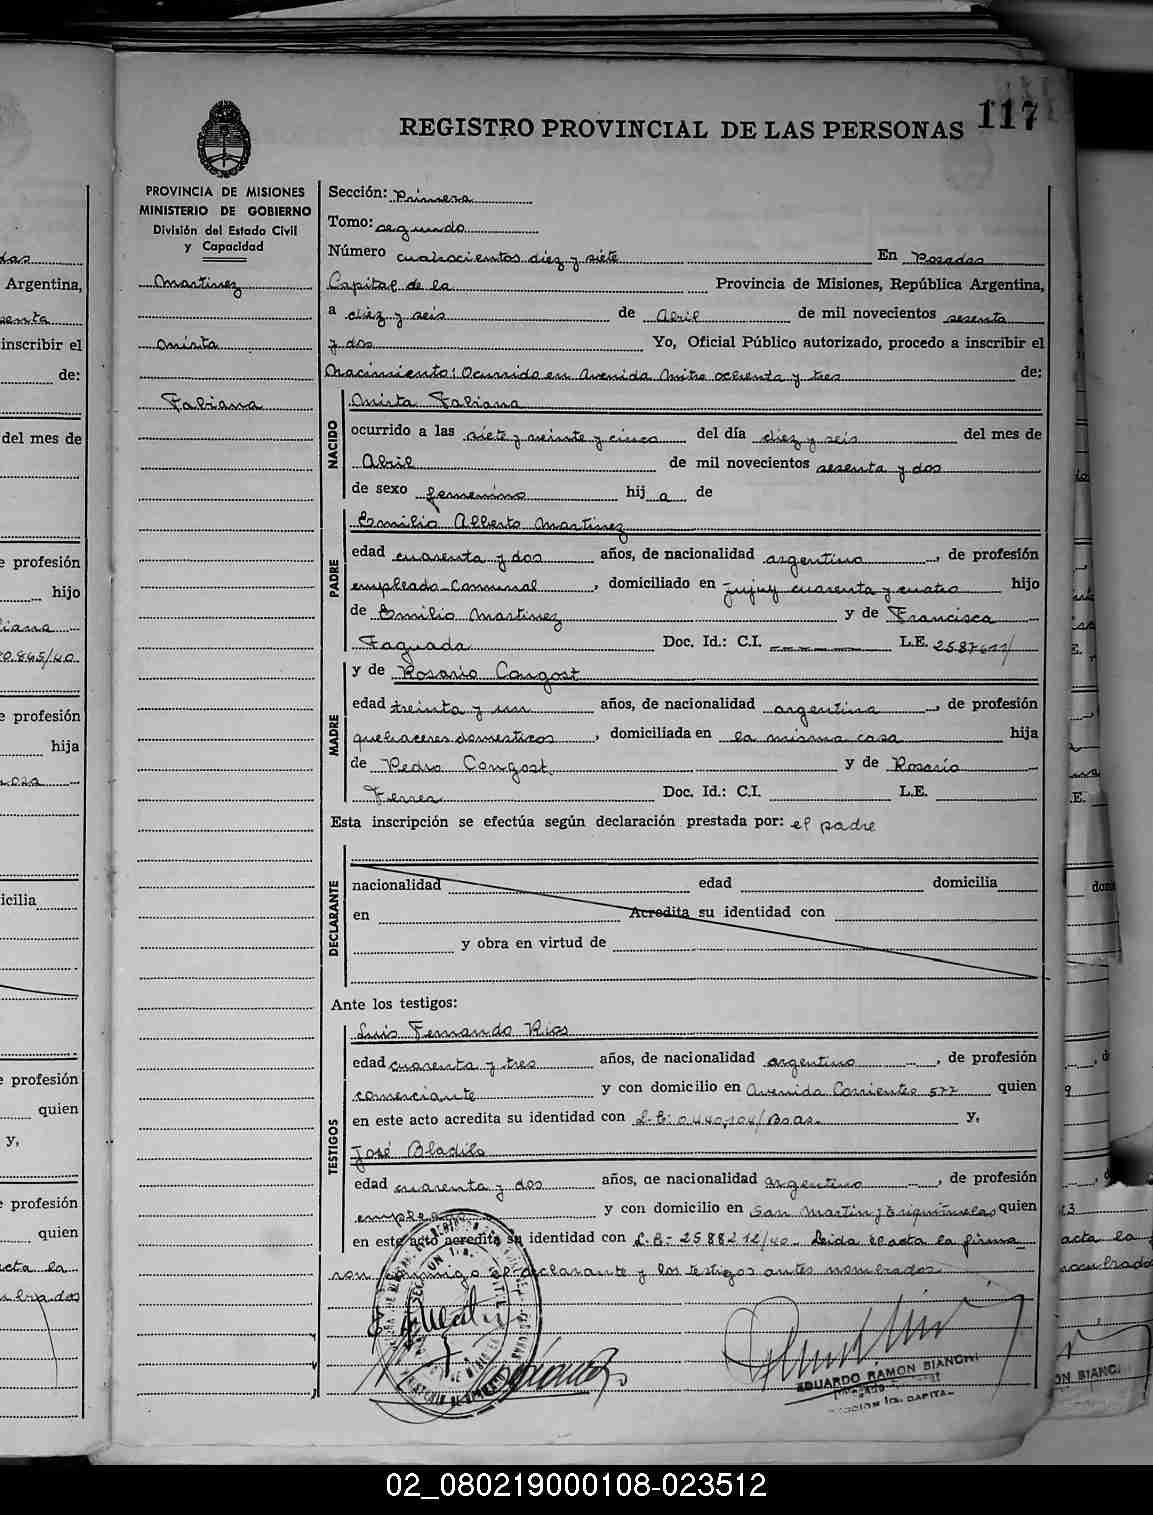 117
REGISTRO PROVINCIAL DE LAS PERSONAS
PROVINCIA DE MISIONES
MINISTERIO DE GOBIERNO
División del Estado Civil
y Capacidad
Martinez
Mirta
Fabiana
Sección: Primera
Tomo: segundo
Número cuatrocientos diez y siete En Posadas
Capital de la Provincia de Misiones, República Argentina,
a diez y seis de Abril de mil novecientos sesenta
y dos Yo, Oficial Público autorizado, procedo a inscribir el
Nacimiento: Ocurrido en Avenida Mitre ochenta y tres de:
NACIDO
Mirta Fabiana
ocurrido a las siete y veinte y cinco del día diez y seis del mes de
Abril de mil novecientos sesenta y dos
de sexo femenino hij a de
PADRE
Emilio Alberto Martinez
edad cuarenta y dos años, de nacionalidad argentino, de profesión
empleado-Comunal, domiciliado en Jujuy cuarenta y cuatro hijo
de Emilio Martinez y de Francisca
Faguada Doc. Id.: C.I. ---- L.E. 2587611/
MADRE
y de Rosario Congost
edad treinta y un años, de nacionalidad argentina, de profesión
quehaceres domesticos, domiciliada en la misma casa hija
de Pedro Congost y de Rosario
Ferrer Doc. Id.: C.I. L.E.
Esta inscripción se efectúa según declaración prestada por: el padre
DECLARANTE
nacionalidad edad domicilia
en Acredita su identidad con
y obra en virtud de
Ante los testigos:
TESTIGOS
Luis Fernando Rios
edad cuarenta y tres años, de nacionalidad argentino, de profesión
comerciante y con domicilio en Avenida Corrientes 577 quien
en este acto acredita su identidad con L.E: 0.440.104/Bsas. y,
José Bladilo
edad cuarenta y dos años, de nacionalidad argentino, de profesión
empleado y con domicilio en San Martin y quien
en este acto acredita su identidad con L.E- 2588212/40. Leida el acta la firma
ron conmigo el declarante y los testigos antes nombrados.
EDUARDO RAMON BIANCHI
CAPITAL
02_080219000108-023512